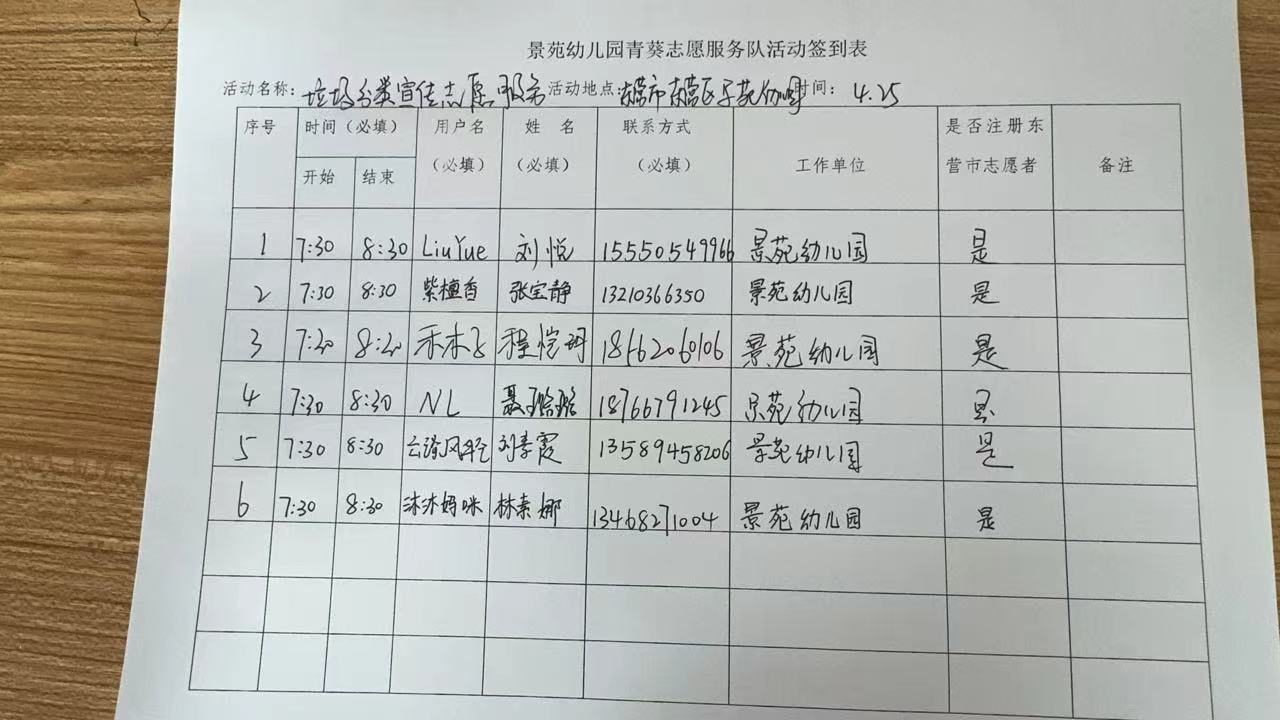 景苑幼儿园青葵志愿服务队活动签到表
活动名称：垃圾分类宣传志愿服务 活动地点：东营市东营区景苑幼儿园 时间：4.25
序号 时间（必填） 用户名（必填） 姓名（必填） 联系方式（必填） 工作单位 是否注册东营市志愿者 备注
开始 结束
1 7:30 8:30 LiuYue 刘悦 15550549966 景苑幼儿园 是
2 7:30 8:30 紫檀香 张宝静 13210366350 景苑幼儿园 是
3 7:30 8:30 禾木 程恺玥 18662060106 景苑幼儿园 是
4 7:30 8:30 NL 聂 18766791245 景苑幼儿园 是
5 7:30 8:30 云清风轻 刘孝霞 13589458206 景苑幼儿园 是
6 7:30 8:30 沐沐妈咪 林素娜 13468271004 景苑幼儿园 是